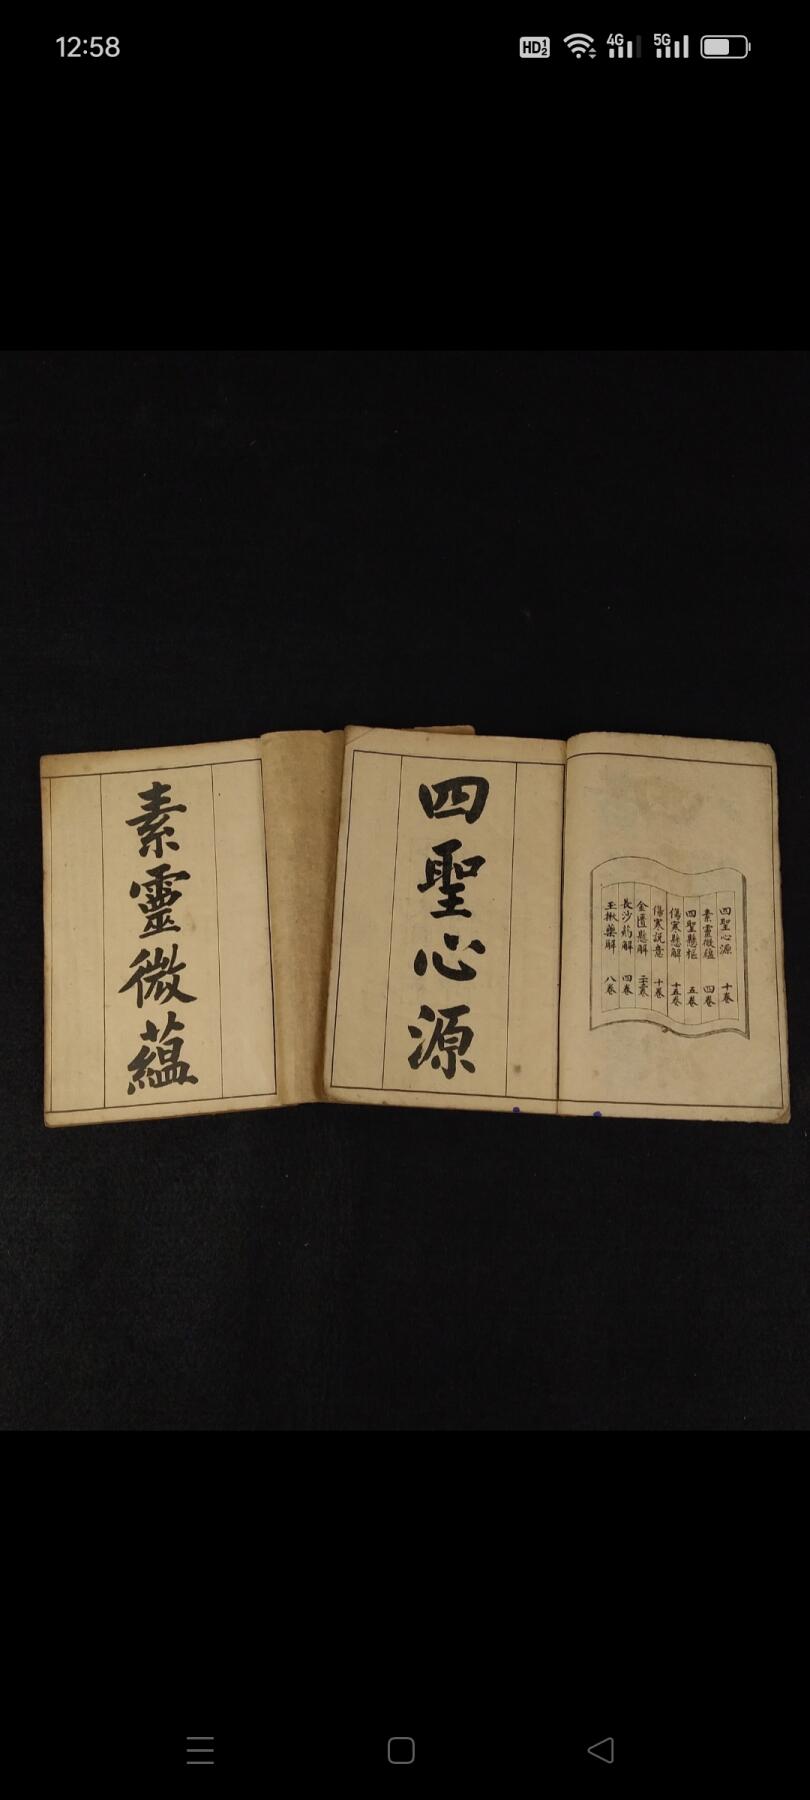 12:58
HD 1 2
4G
5G
四聖心源 十卷
素靈微蘊 四卷
四聖懸樞 五卷
傷寒懸解 十五卷
傷寒説意 十卷
金匱懸解
長沙葯解 四卷
玉楸藥解 八卷
四聖心源
素靈微蘊